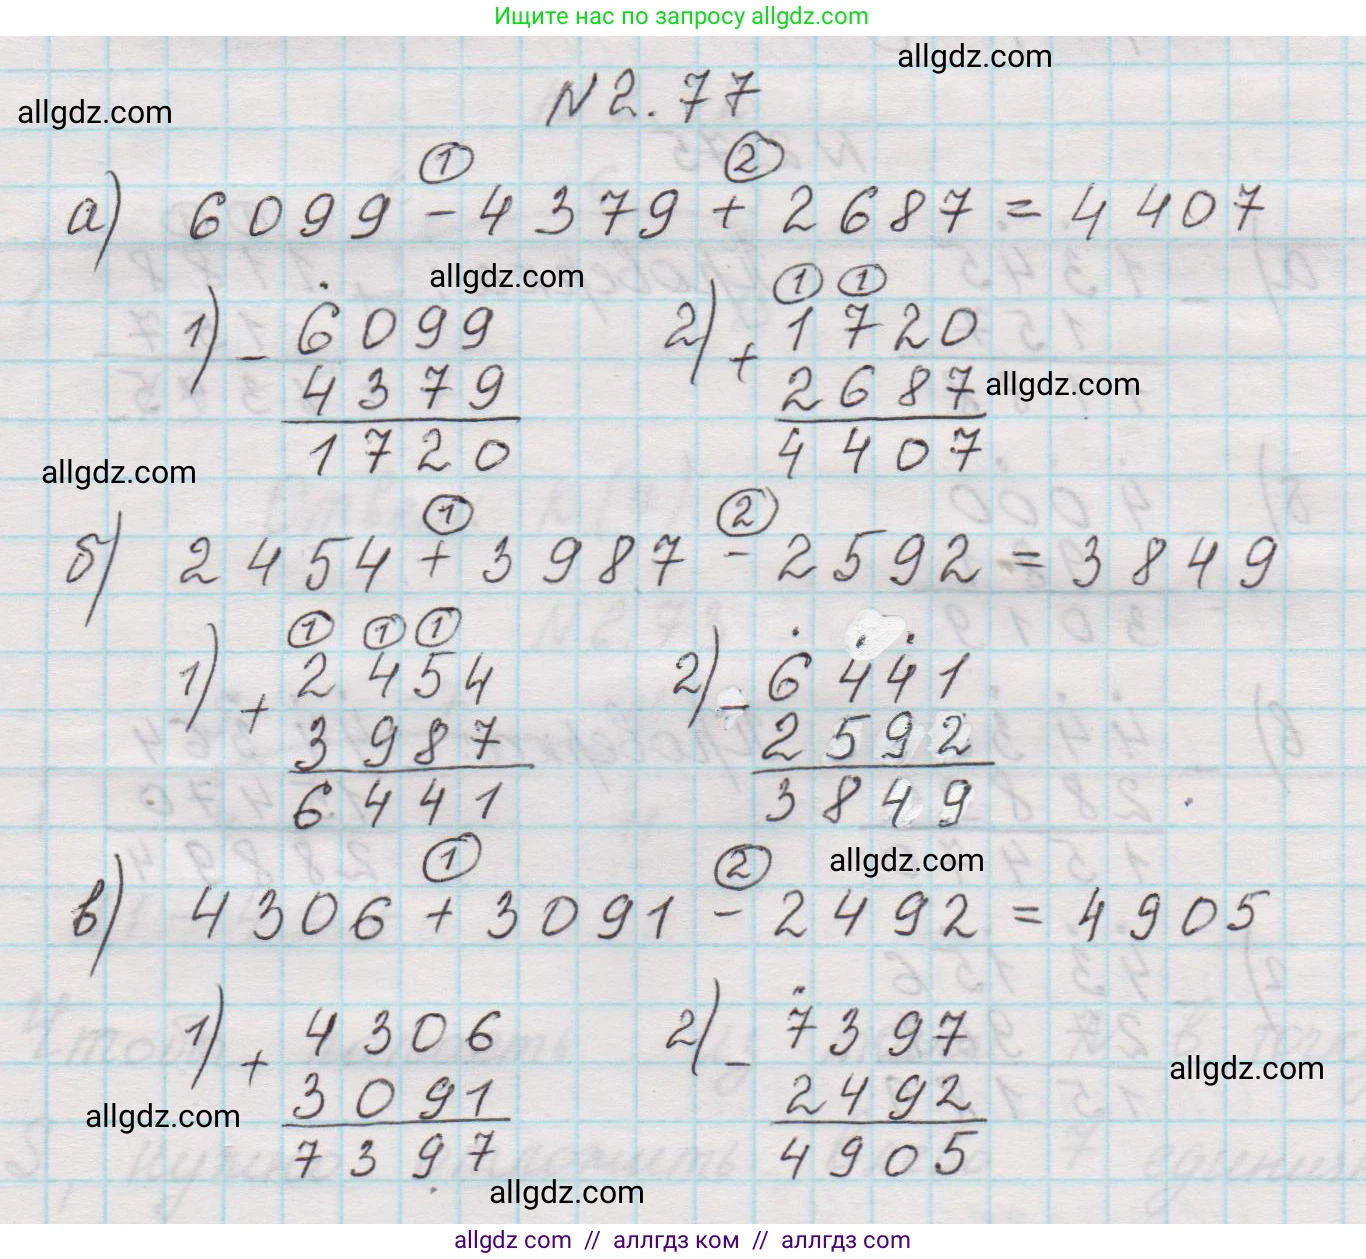 Ищите нас по запросу allgdz.com
allgdz.com
allgdz.com
N 2.77
① ②
а) 6099 - 4379 + 2687 = 4407
allgdz.com
① ①
1) - 6099 2) + 1720
4379 2687
allgdz.com
1720 4407
allgdz.com
① ②
б) 2454 + 3987 - 2592 = 3849
① ① ①
1) + 2454 2) - 6441
3987 2592
6441 3849
① ②
allgdz.com
в) 4306 + 3091 - 2492 = 4905
1) + 4306 2) - 7397
allgdz.com
3091 2492
allgdz.com
7397 4905
allgdz.com
allgdz.com // аллгдз ком // аллгдз com